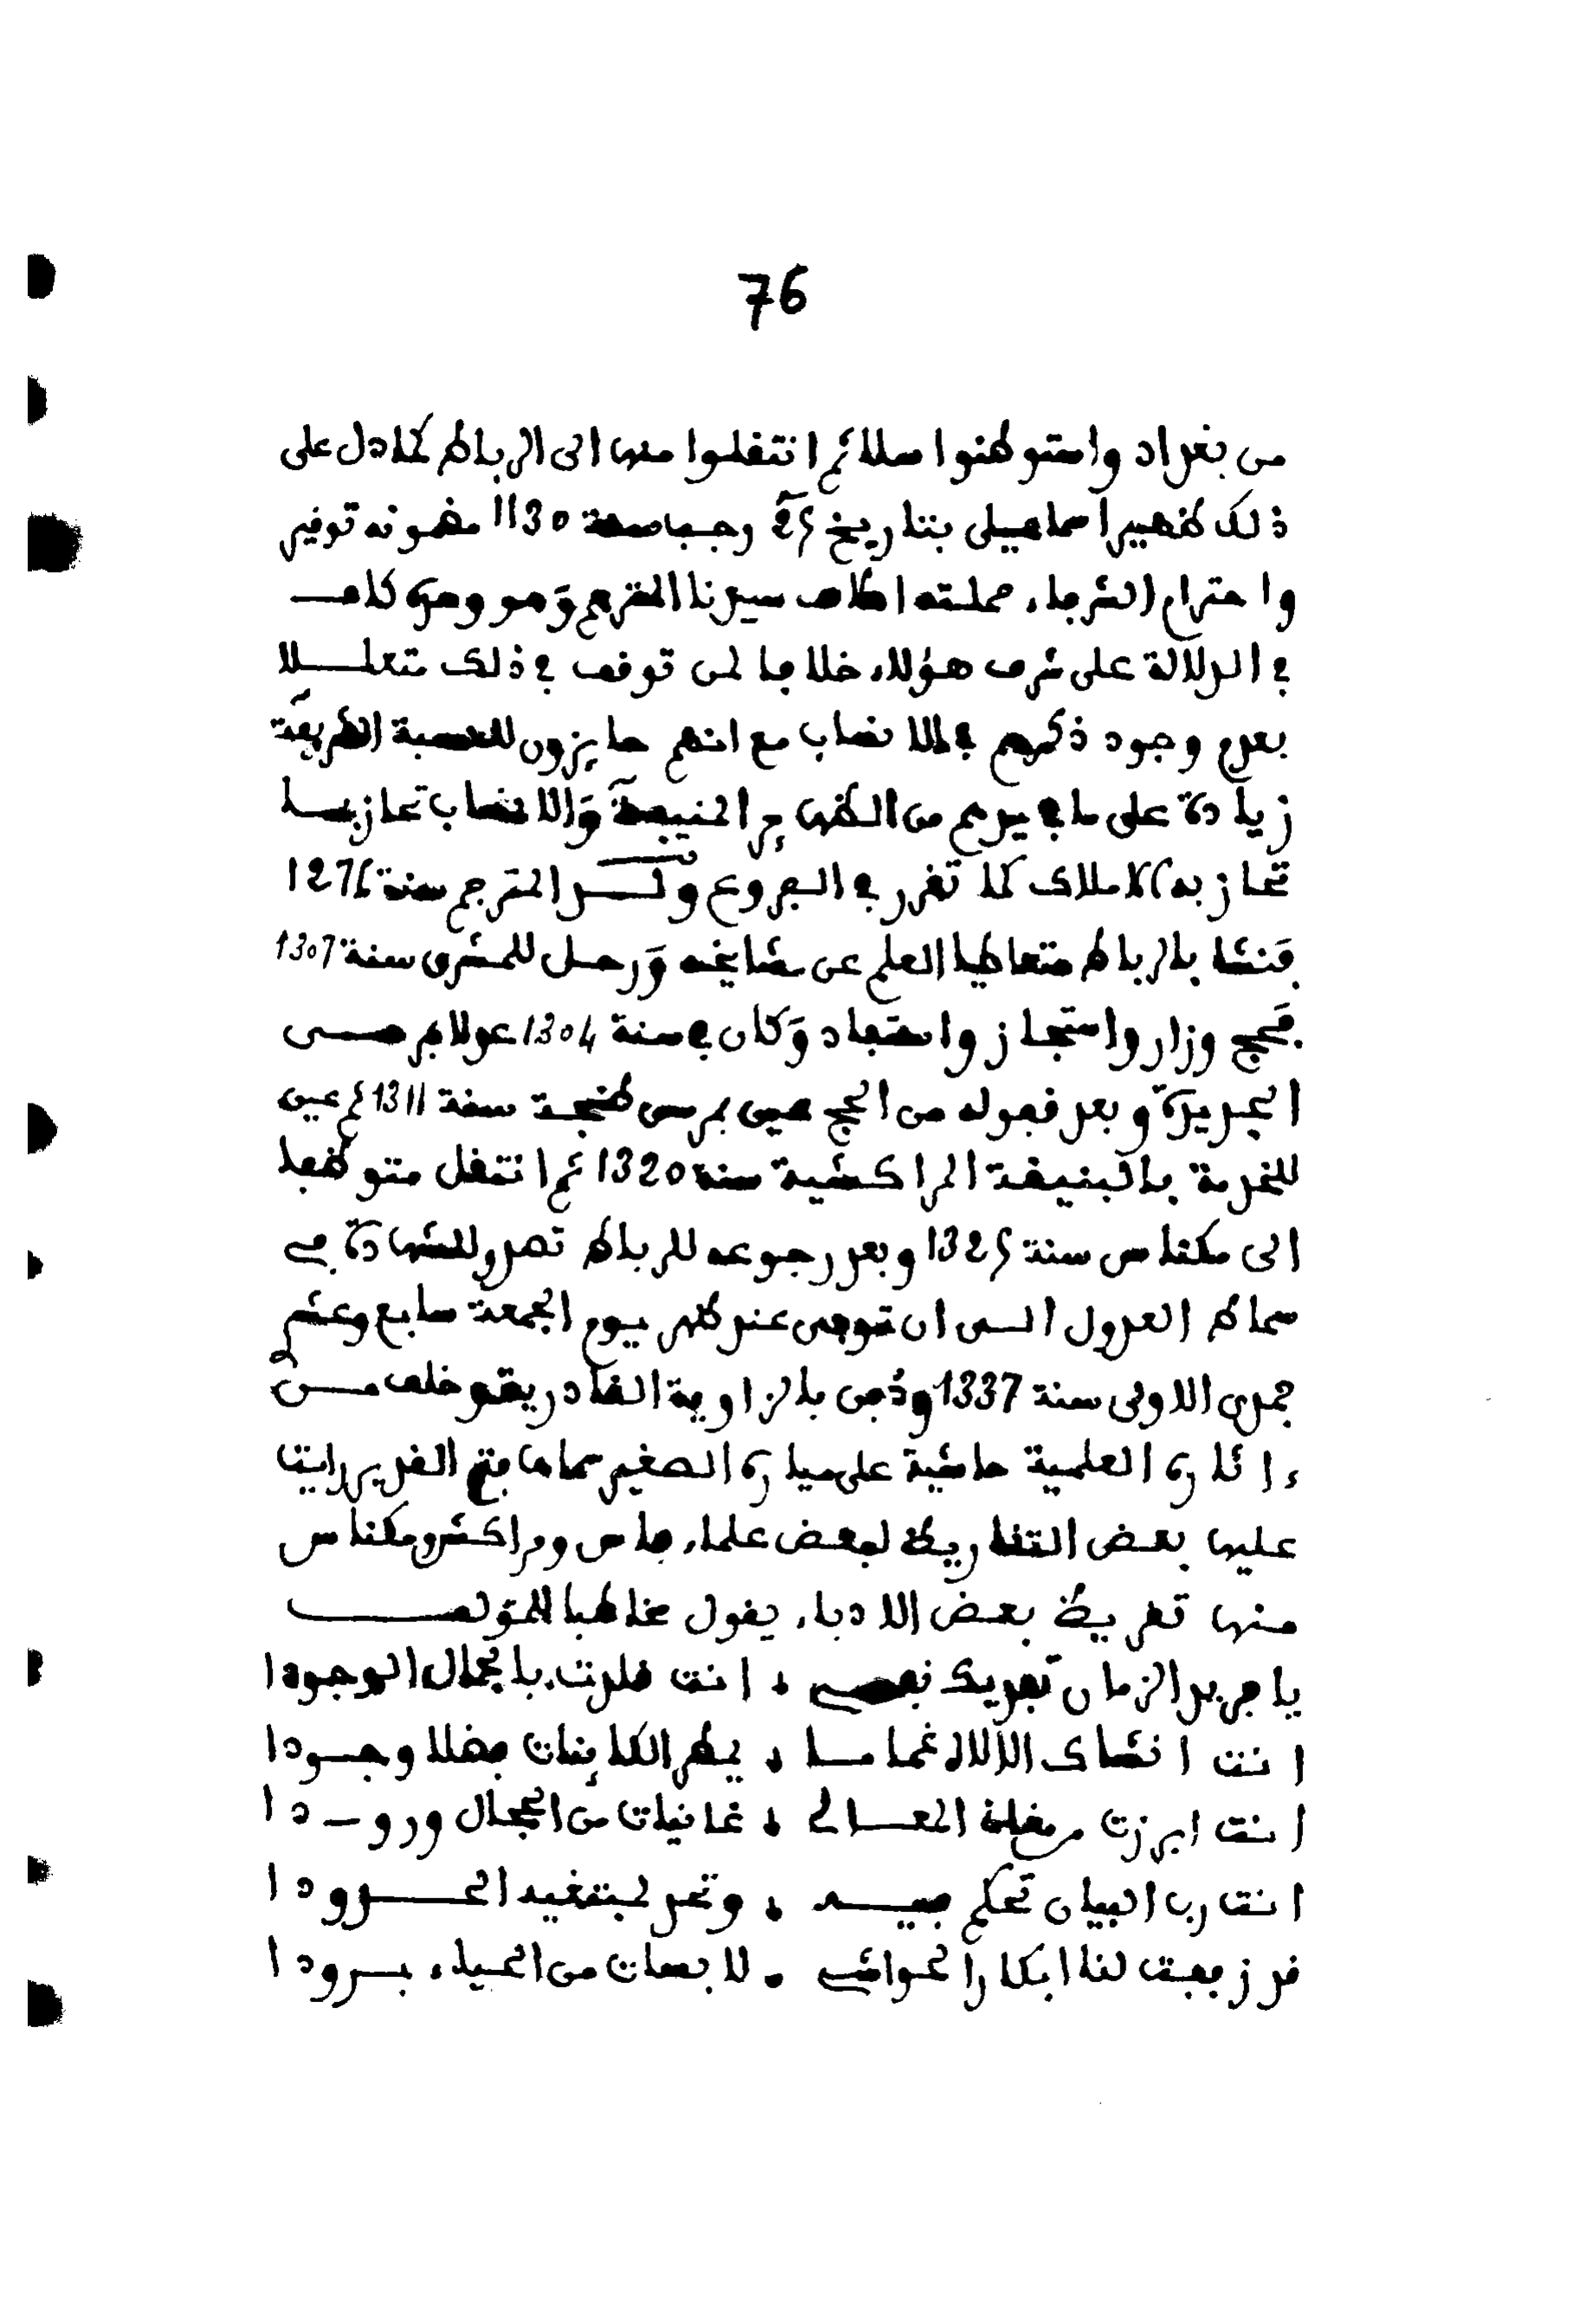 76
من بغداد واستوطنوا سلا ثم انتقلوا منها الى الرباط كما دل على
ذلك ظهير اسماعيلي بتاريخ 25 رجب سنة 1130 مضمونه توقير
واحترام الشرفاء حملته اسلاف سيدنا المترجم وهو وحده كاف
في الدلالة على شرف هؤلاء خلافا لمن توقف في ذلك متعللا
بعدم وجود ذكرهم في الانساب مع انهم حايزون للنسبة الشريفة
زيادة على ما بيدهم من الظهاير المنيفة والانساب تحاز بما
تحاز به الاملاك كما تقرر في الفروع ولد المترجم سنة 1276
فنشا بالرباط متعاطيا العلم عن مشايخه ورحل للمشرق سنة 1307
فحج وزار واستجاز واستفاد وكان في سنة 1304 عدلا بمرسى
الجديدة وبعد قفوله من الحج عين بمرسى طنجة سنة 1311 ثم عين
للخدمة بالبنيقة المراكشية سنة 1320 ثم انتقل متوظفا
الى مكناس سنة 1325 وبعد رجوعه للرباط تصدر للشهادة في
سماط العدول الى ان توفى عند ظهر يوم الجمعة سابع وعشر
جمدى الاولى سنة 1337 ودفن بالزاوية القادرية وخلف مــن
ءاثاره العلمية حاشية على ميارة الصغير سماها فتح القدير رايت
عليها بعض التقاريظ لبعض علماء فاس ومراكش ومكناس
منها تقريظ بعض الادباء يقول مخاطبا للمؤلف
يا فريد الزمان تفديك نفسي ، انت قلدت بالجمال الوجودا
انت انشاك الالاه غماما ، يمطر الكاينات فضلا وجودا
انت ابرزت من مقلة المعالي ، غانيات من الجمال ورودا
انت رب البيان تحكم فيه ، وتحد لمبتغيه الحدودا
قد زففت لنا ابكار الحواشي ، لابسات من الحياء برودا